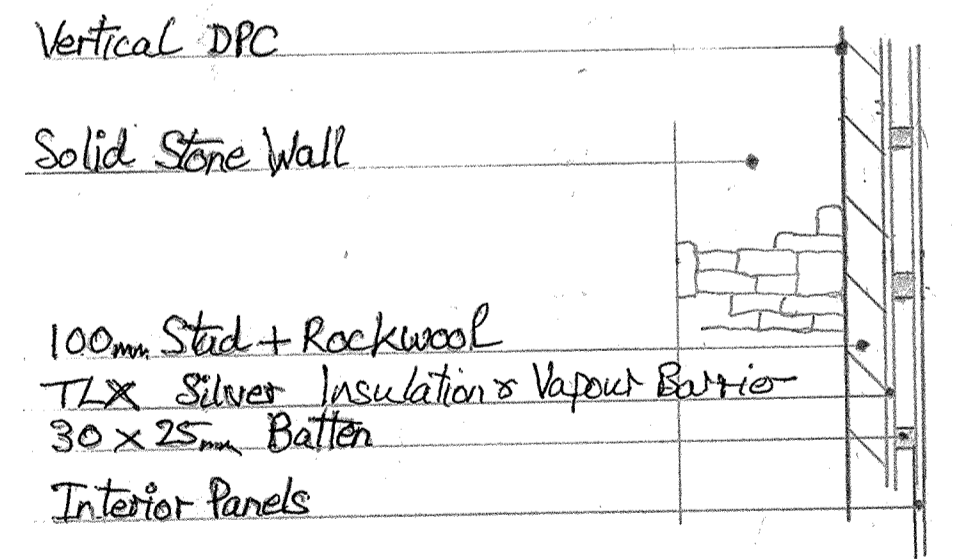 Vertical DPC
Solid Stone Wall
100mm Stud + Rockwool
TLX Silver Insulation & Vapour Barrier
30 x 25mm Batten
Interior Panels